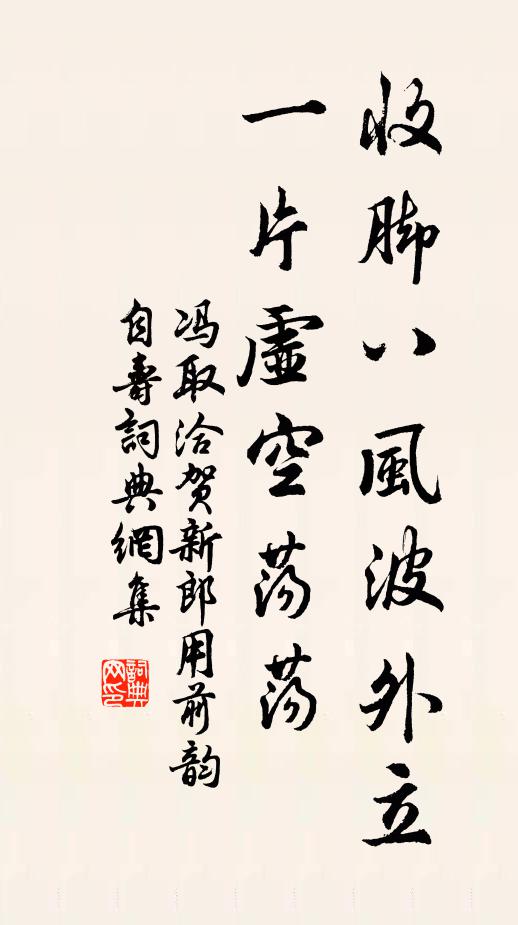 收脚八風波外立
一片虛空荡荡
冯取洽贺新郎用前韵
自壽詞典網集
詞典网印